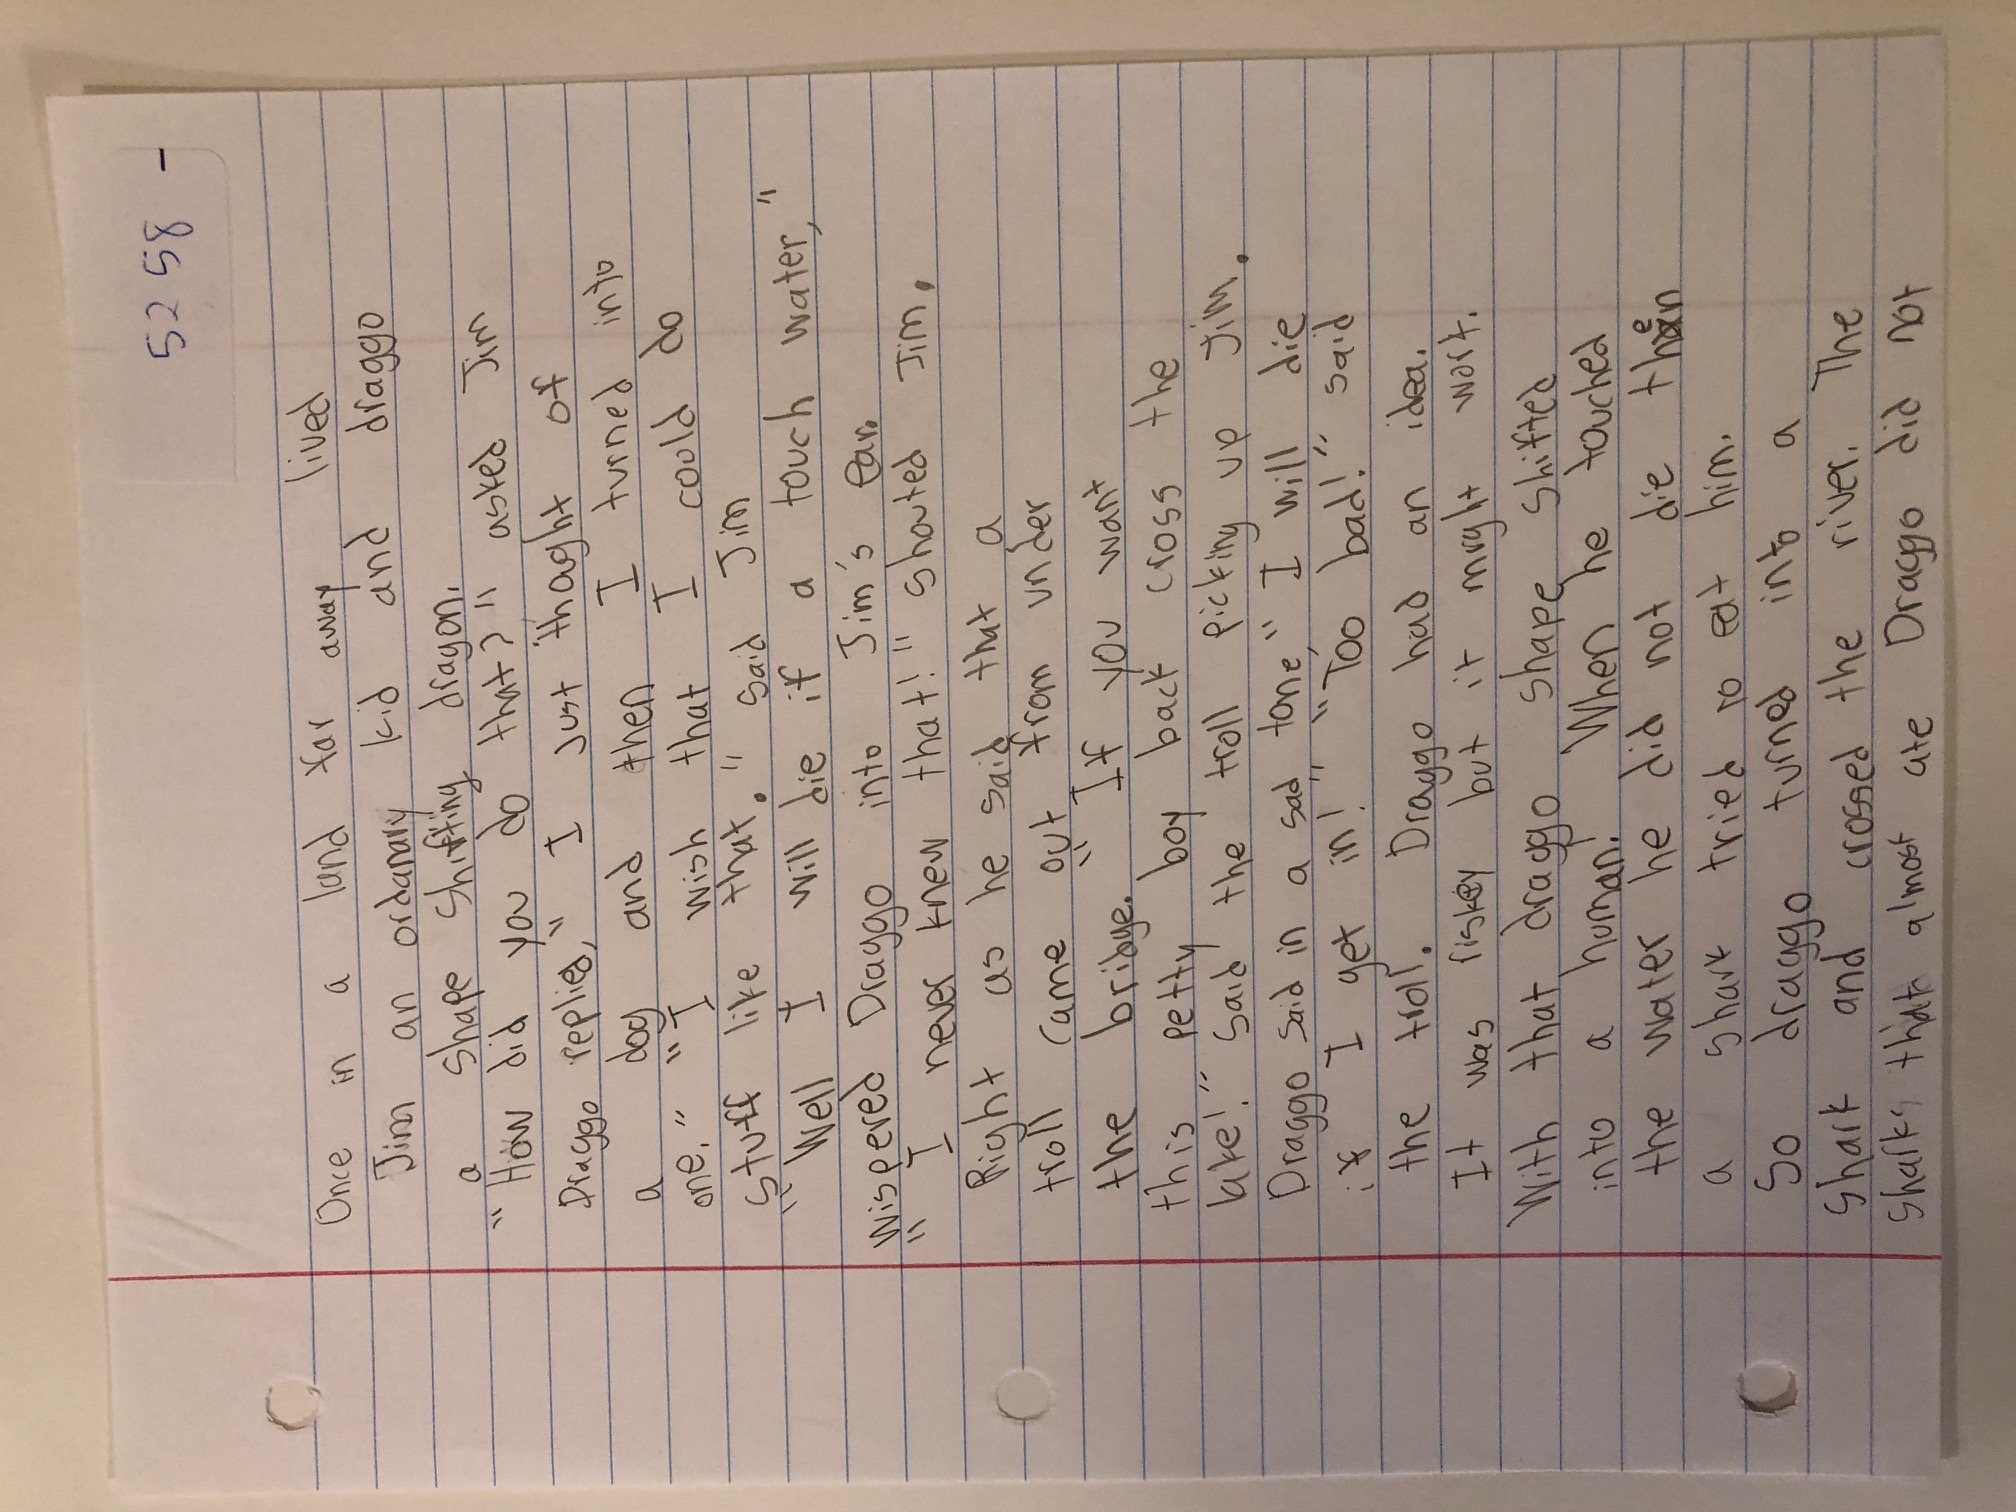 5258 -
Once in a land far away lived
Jim an ordanary kid and draggo
a shape shifting dragon.
"How did you do that?" asked Jim
Draggo replied," I Just thaght of
a dog and then I turned into
one." "I wish that I could do
stuff like that." said Jim
"Well I will die if a touch water,"
wispered Draggo into Jim's ear.
" I never knew that!" shouted Jim.
Right as he said that a
troll came out from under
the bridge. "If you want
this petty boy back cross the
lake!" said the troll picking up Jim.
Draggo said in a sad tone," I will die
if I get in!" "Too bad!" said
the troll. Draggo had an idea.
It was riskey but it might work.
With that draggo shape shifted
into a human! When he touched
the water he did not die then
a shark tried to eat him.
So draggo turned into a
shark and crossed the river. The
sharks that almost ate Draggo did not